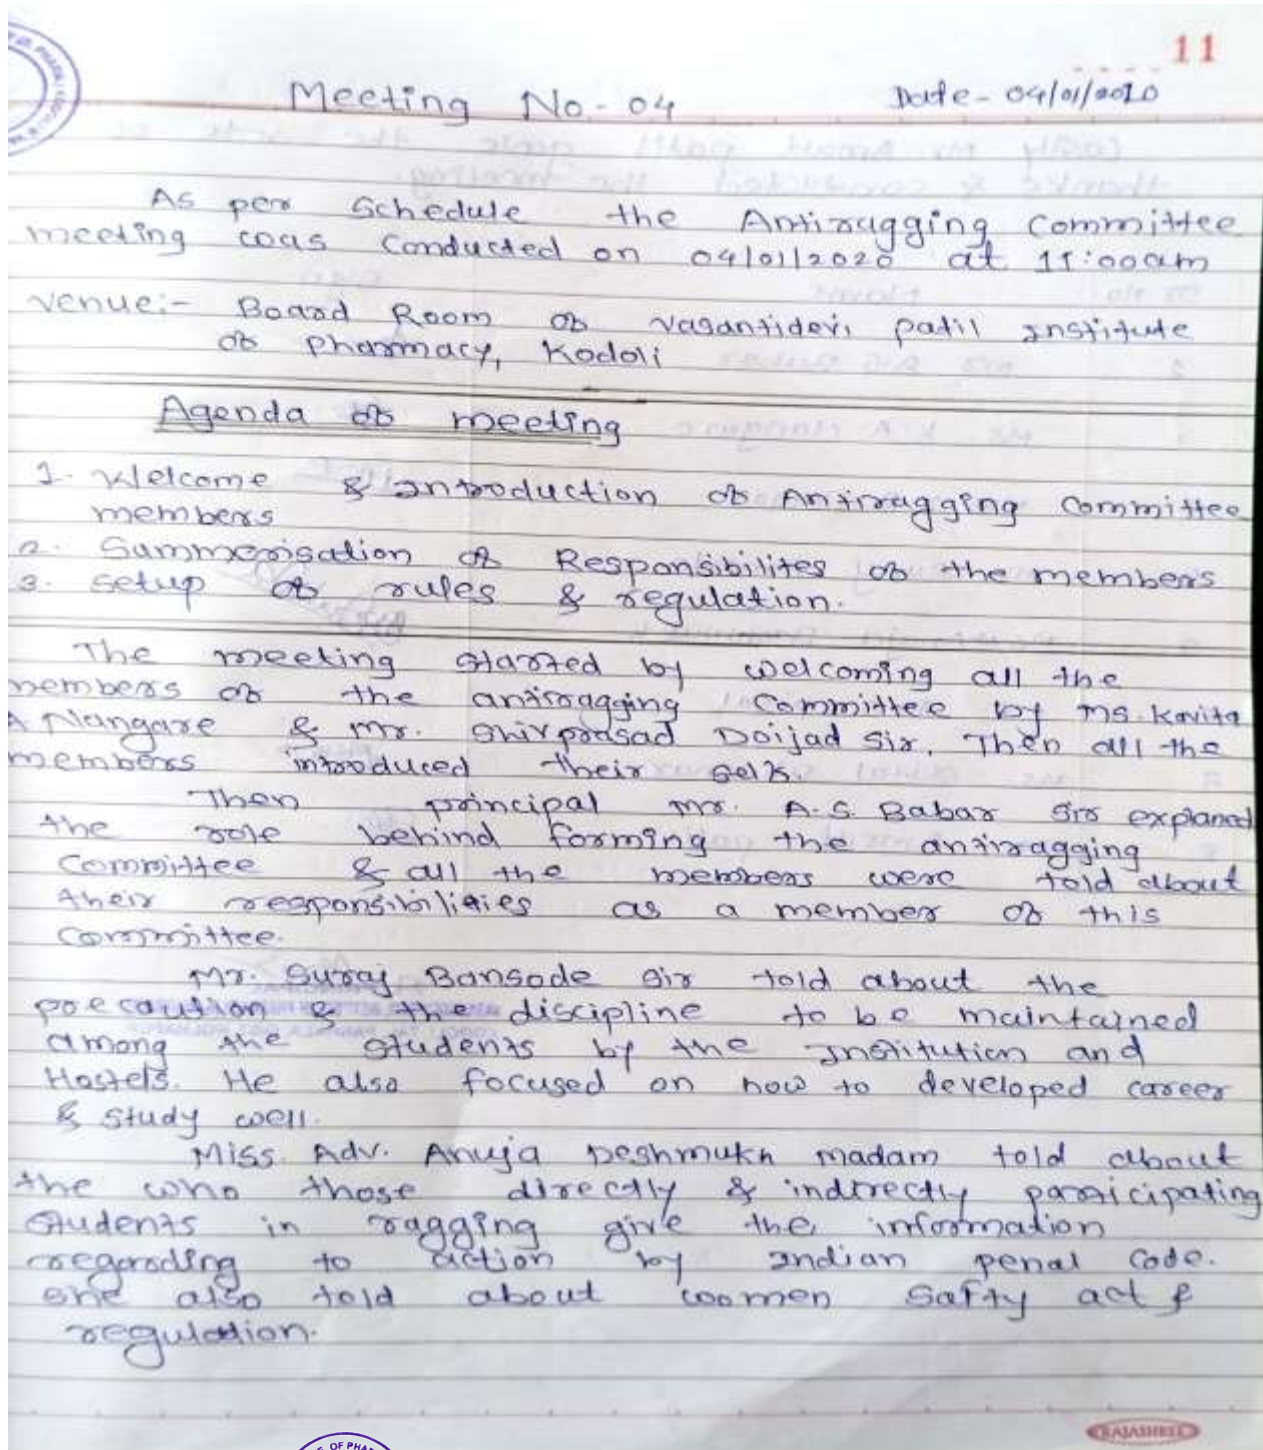 11
Meeting No-04
Date- 04/01/2020
As per Schedule the Antiragging Committee
meeting was Conducted on 04/01/2020 at 11:00am
Venue:- Board Room of Vasantidevi patil Institute
of pharmacy, Kodoli
Agenda of meeting
1. Welcome & Introduction of Antiragging Committee
members
2. Summerisation of Responsibilites of the members
3. setup of rules & regulation.
The meeting started by welcoming all the
members of the antiragging Committee by Ms. Kavita
A Nangare & Mr. Shivprasad Doijad Sir. Then all the
members introduced their self.
Then principal Mr. A.S. Babar Sir explaned
the role behind forming the antiragging
Committee & all the members were told about
their responsibilities as a member of this
Committee.
Mr. Suraj Bansode Sir told about the
precaution & the discipline to be maintained
among the students by the Institution and
Hostels. He also focused on how to developed career
& study well.
Miss. Adv. Anuja Deshmukh madam told about
the who those directly & indirectly participating
students in ragging give the information
regarding to action by Indian penal Code.
She also told about women Safty act &
regulation.
RAJASHREE
OF PHA